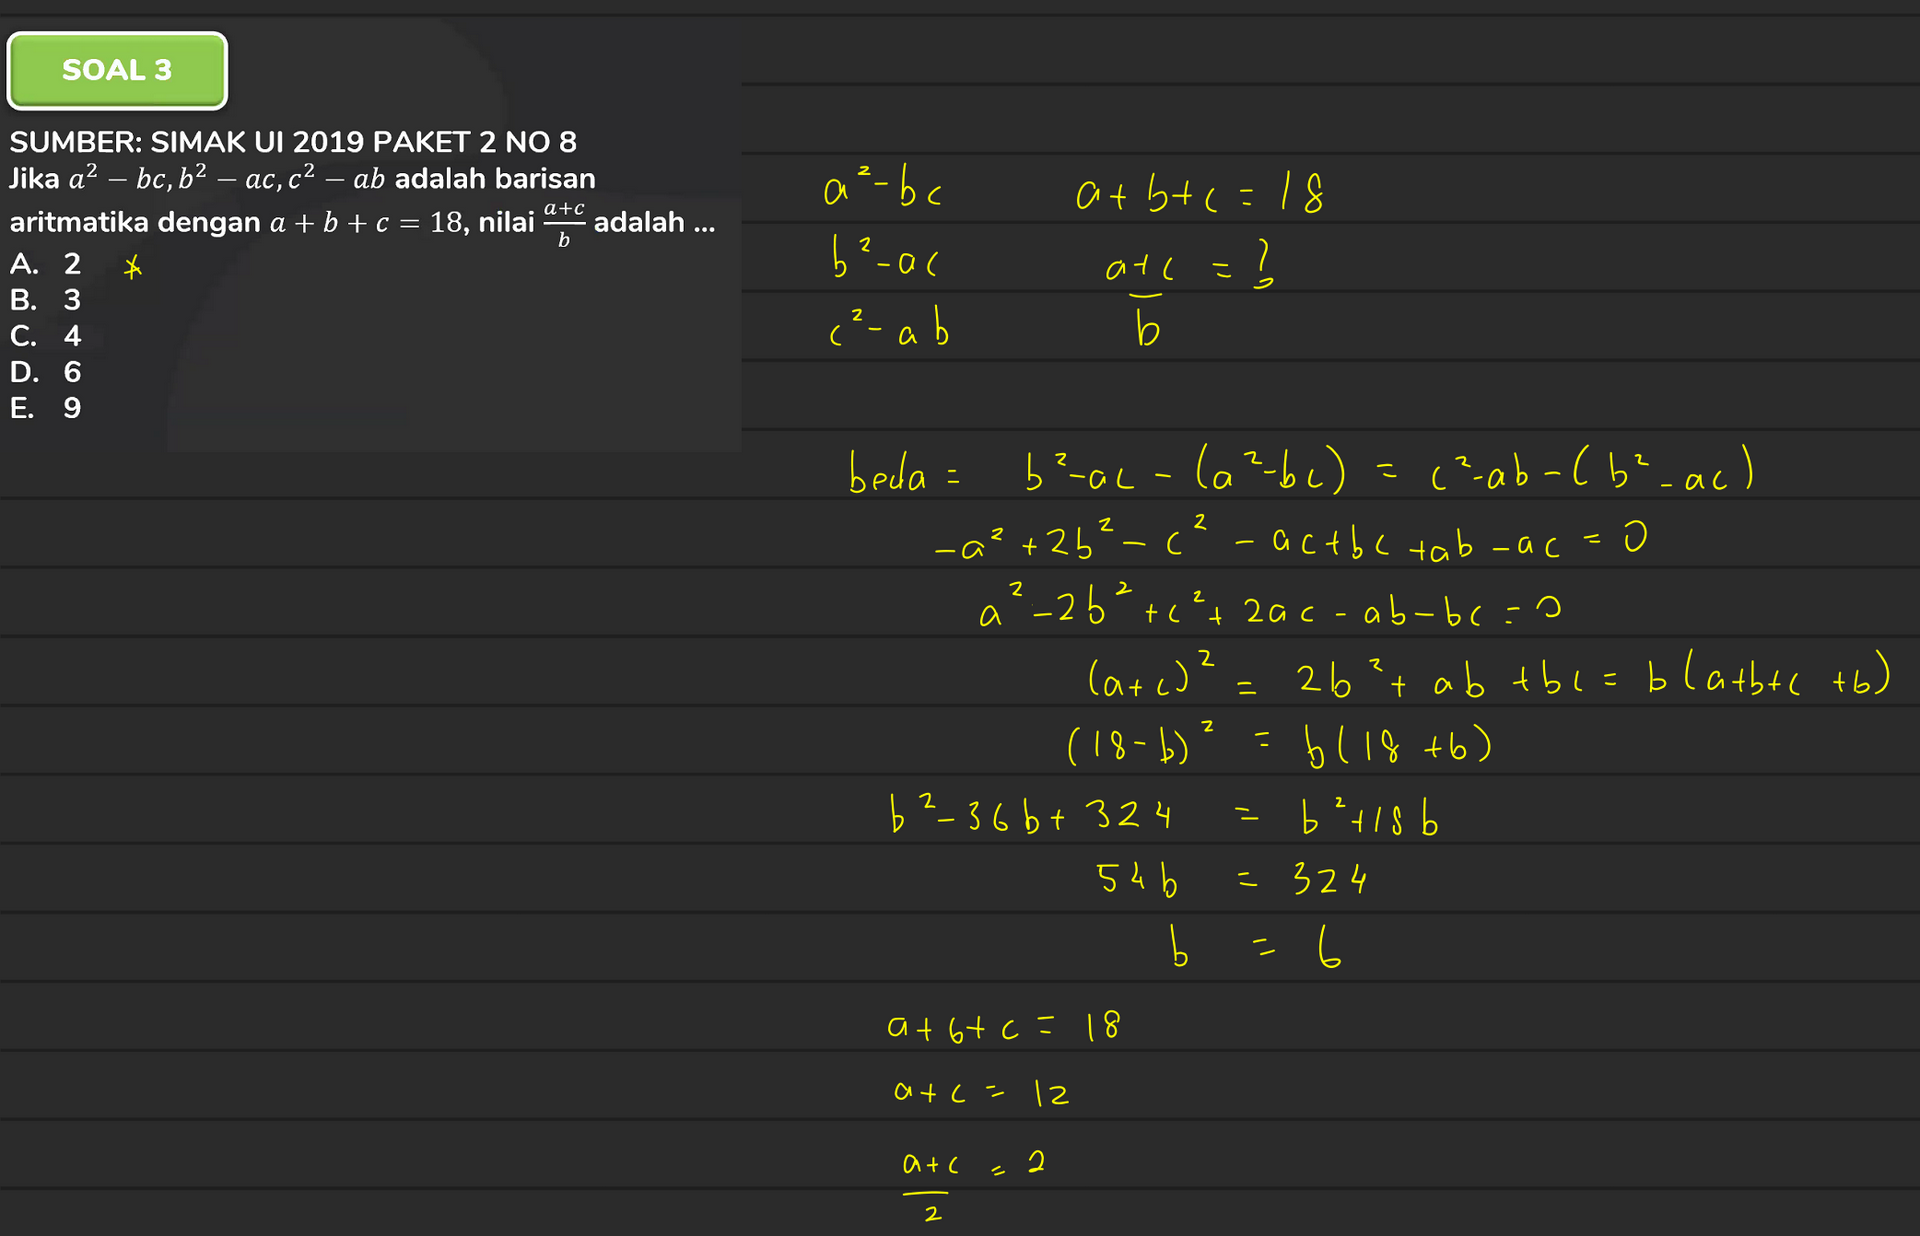 SOAL 3
SUMBER: SIMAK UI 2019 PAKET 2 NO 8
Jika a² − bc, b² − ac, c² − ab adalah barisan
aritmatika dengan a + b + c = 18, nilai (a+c)/b adalah ...
A. 2 *
B. 3
C. 4
D. 6
E. 9
a²-bc
b²-ac
c²-ab
a+b+c = 18
(a+c)/b = ?
beda = b²-ac - (a²-bc) = c²-ab - (b²-ac)
-a² + 2b² - c² - ac + bc + ab - ac = 0
a² - 2b² + c² + 2ac - ab - bc = 0
(a+c)² = 2b² + ab + bc = b(a+b+c +b)
(18-b)² = b(18+b)
b² - 36b + 324 = b² + 18b
54b = 324
b = 6
a+6+c = 18
a+c = 12
(a+c)/2 = 2